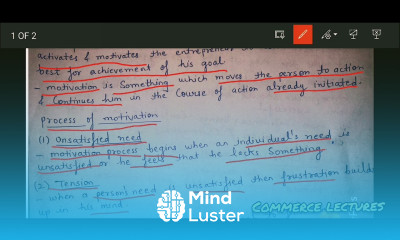 1 OF 2
activates & motivates the entrepreneur
best for achievement of his goal
- motivation is something which moves the person to action
& continues him in the course of action already initiated.
Process of motivation
(1) Unsatisfied need
- motivation process begins when an individual's need is
unsatisfied or he feels that he lacks something.
(2) Tension
- when a person's need is unsatisfied then frustration build
up in his mind.
Mind
Luster
COMMERCE LECTURES